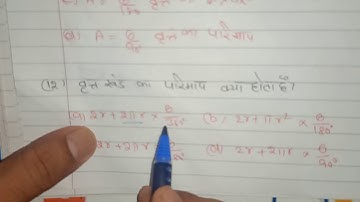 (d) A = θ/90° वृत्त का परिमाप
(12) वृत्त खंड का परिमाप क्या होता है?
(a) 2r + 2πr × θ/360° (b) 2r + πr² × θ/180°
2r + 2πr × (d) 2r + 2πr × θ/90°